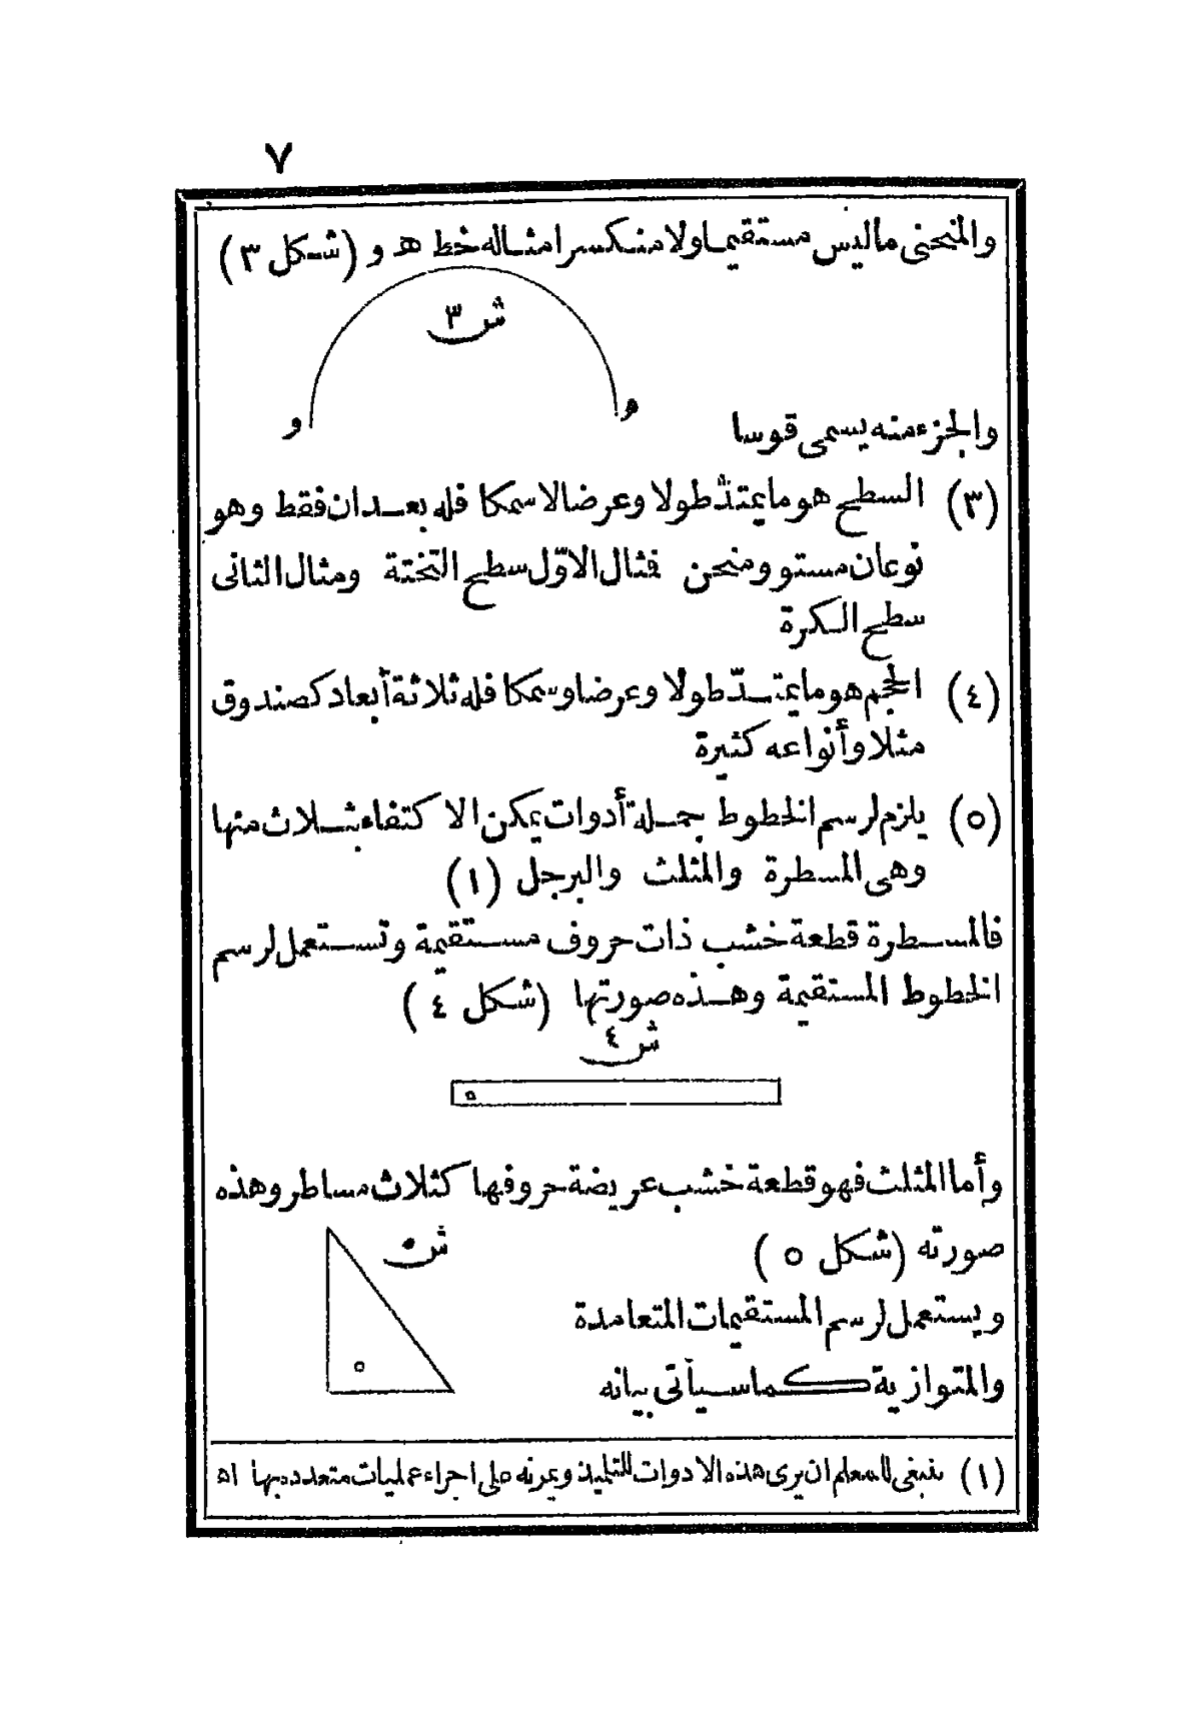 ٧
والمنحنى ماليس مستقيما ولا منكسرا مثاله خط هـ و (شكل ٣)
ش ٣
و
والجزء منه يسمى قوسا
(٣) السطح هو ما يمتدّ طولا وعرضا لا سمكا فله بعدان فقط وهو
نوعان مستو ومنحن فمثال الاوّل سطح التختة ومثال الثانى
سطح الكرة
(٤) الحجم هو ما يمتدّ طولا وعرضا وسمكا فله ثلاثة أبعاد كصندوق
مثلا وأنواعه كثيرة
(٥) يلزم لرسم الخطوط جملة أدوات يمكن الاكتفاء بثلاث منها
وهى المسطرة والمثلث والبرجل (١)
فالمسطرة قطعة خشب ذات حروف مستقيمة وتستعمل لرسم
الخطوط المستقيمة وهذه صورتها (شكل ٤)
ش ٤
وأما المثلث فهو قطعة خشب عريضة حروفها كثلاث مساطر وهذه
صورته (شكل ٥)
ش ٥
ويستعمل لرسم المستقيمات المتعامدة
والمتوازية كما سيأتى بيانه
(١) ينبغى للمعلم ان يرى هذه الادوات للتلميذ ويمرنه على اجراء عمليات متعدده بها اه